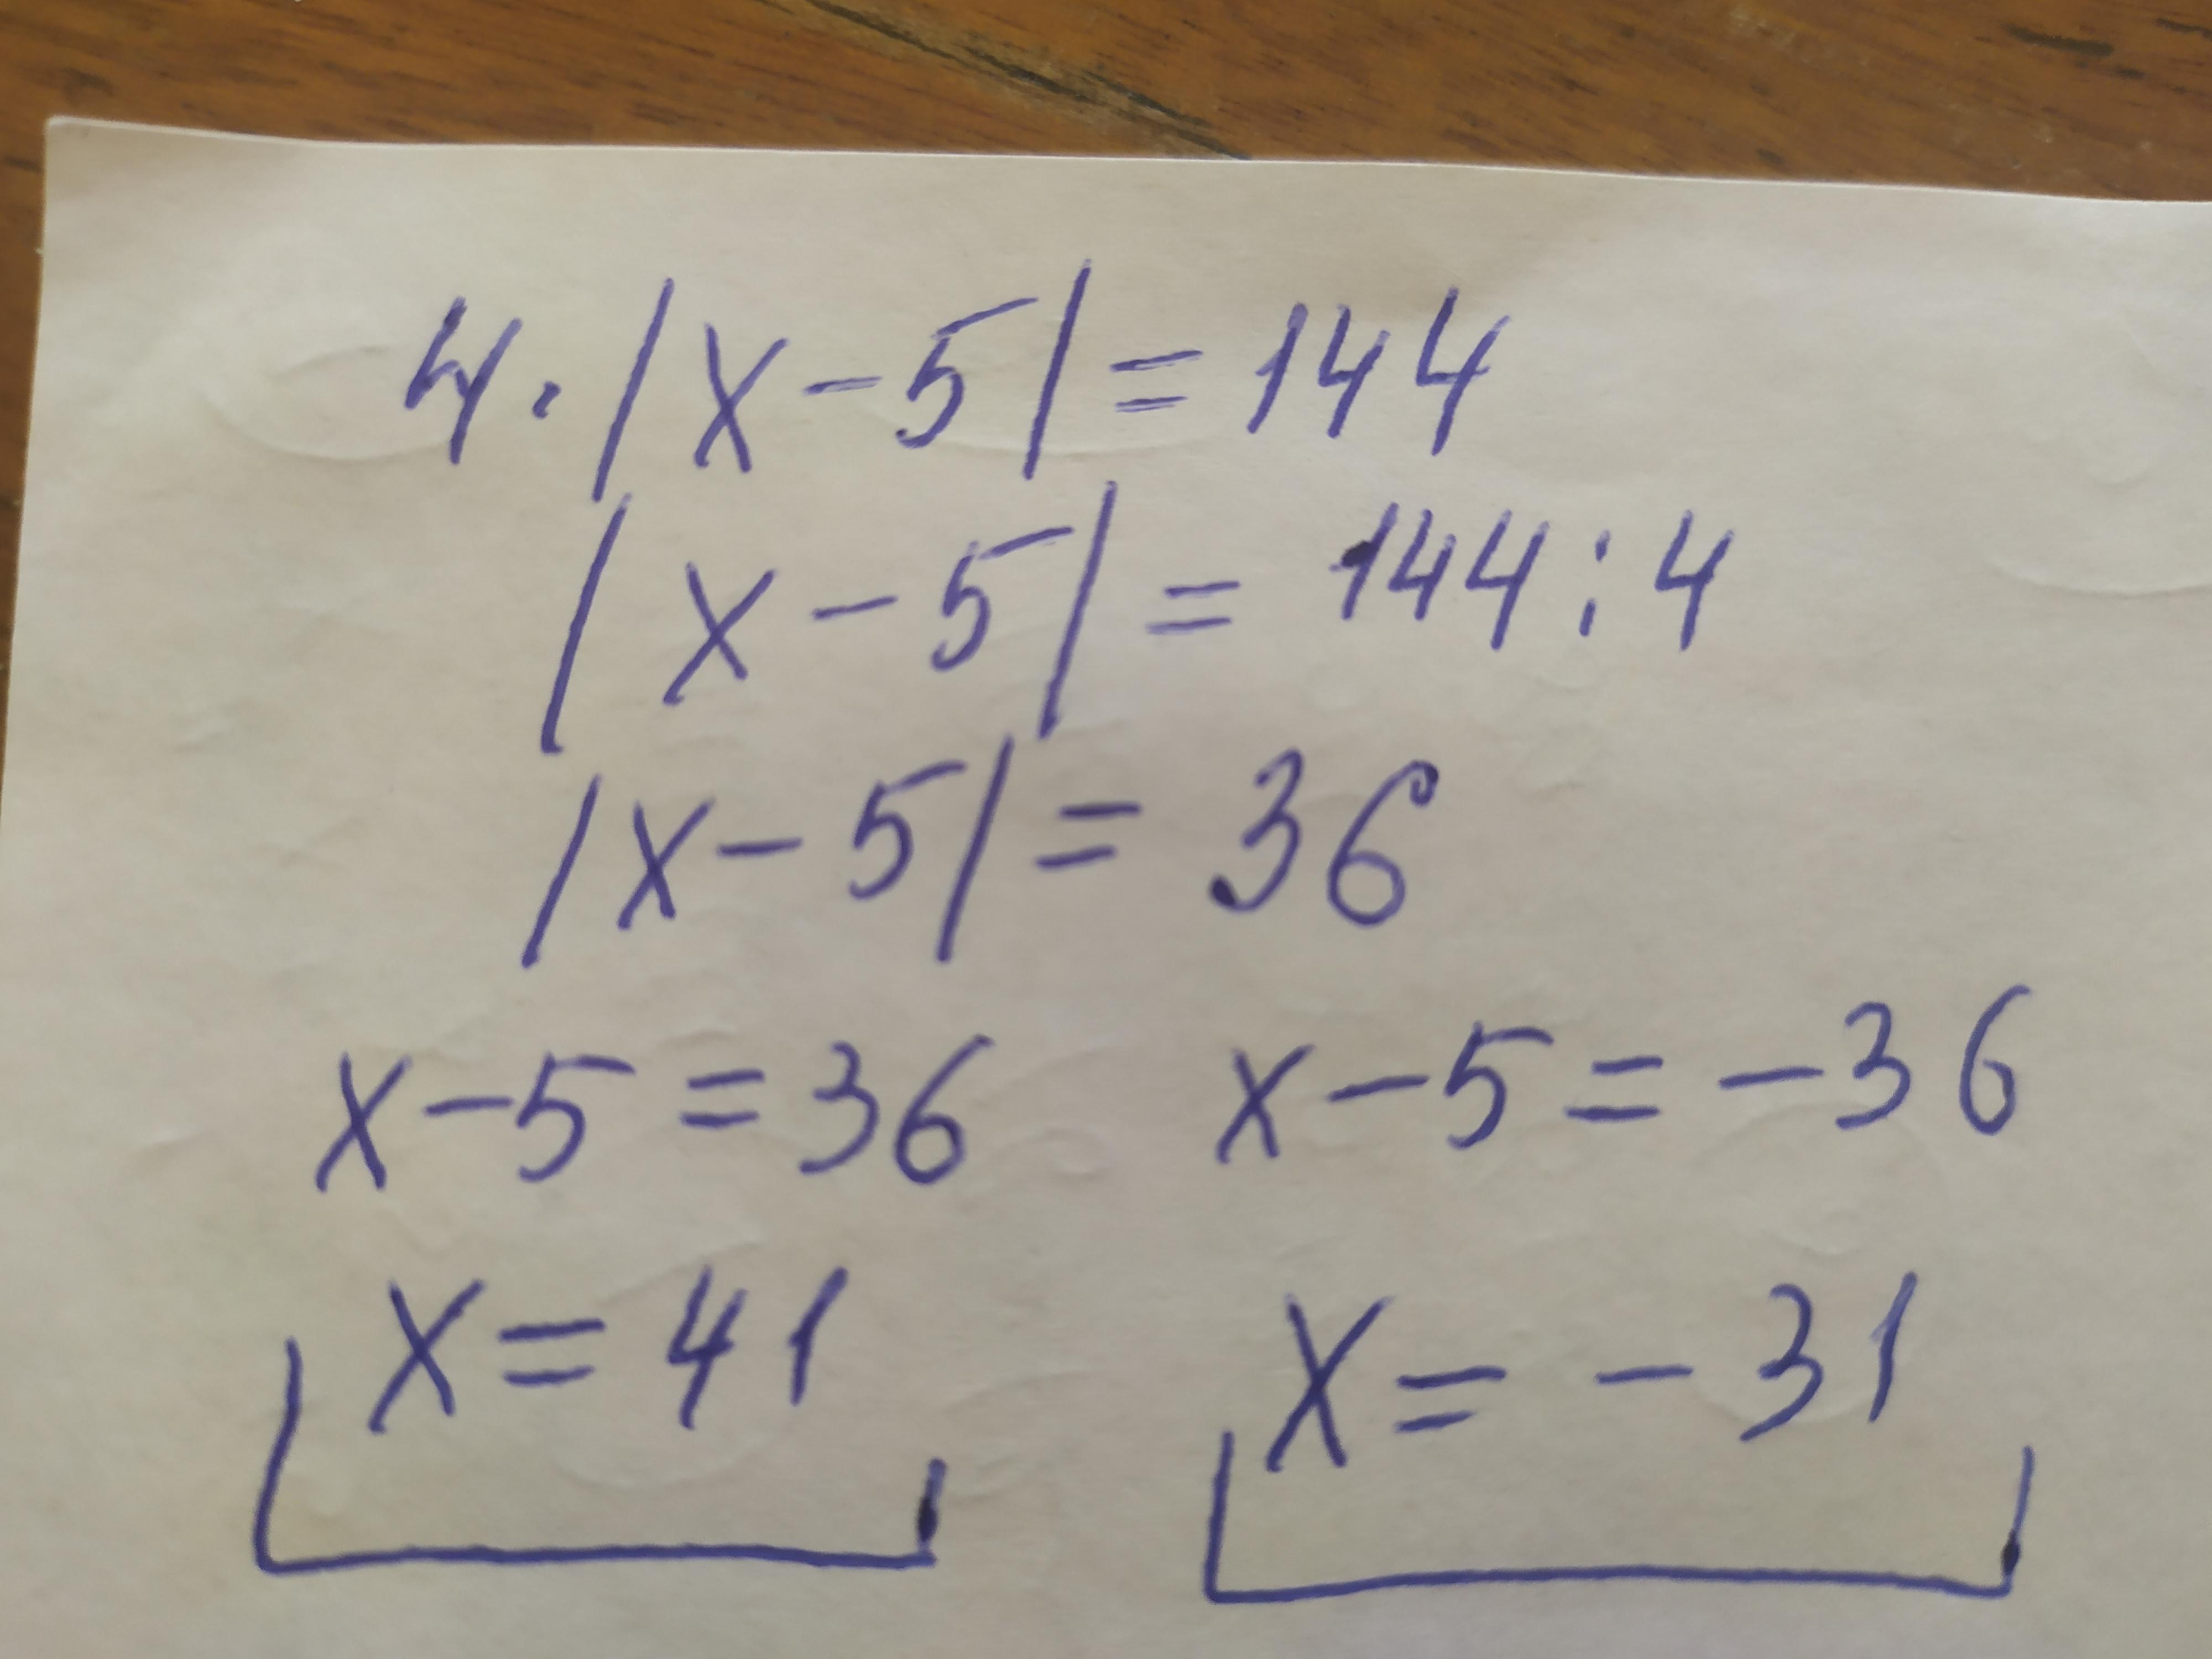 4·|x-5|=144
|x-5|=144:4
|x-5|=36
x-5=36 x-5=-36
x=41 x=-31